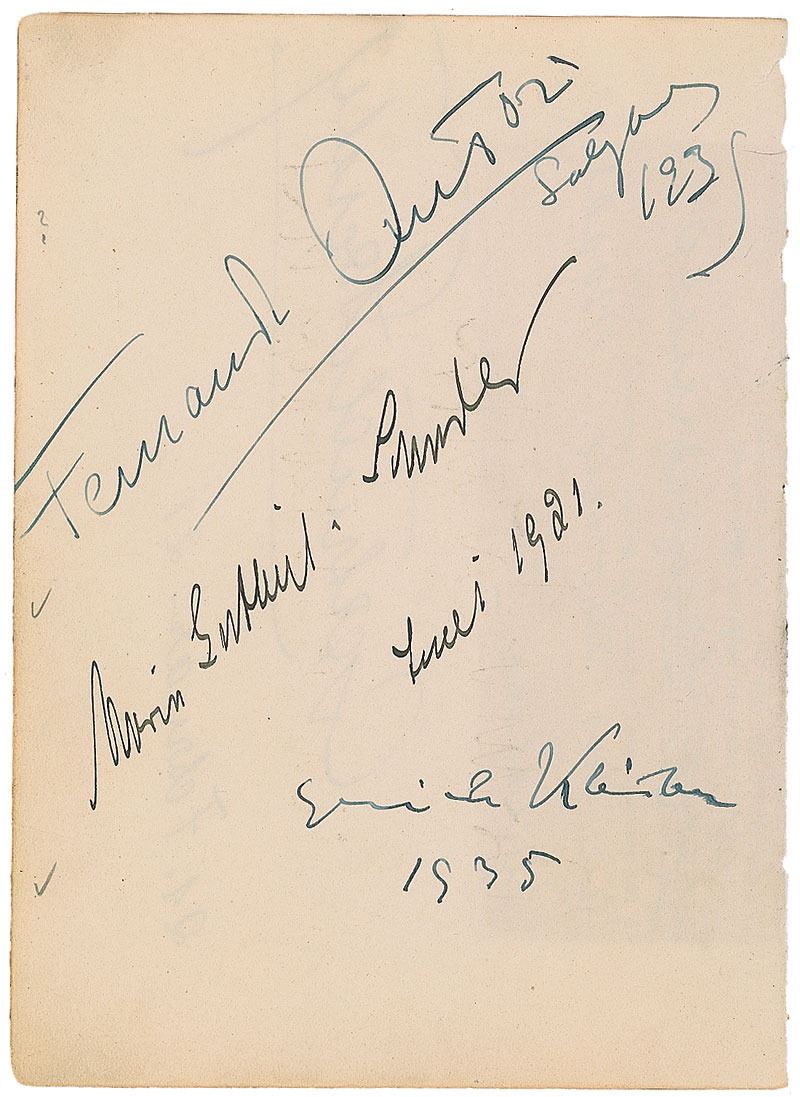 Fernando Autori
1935
?
Marie Gutheil-Schoder
Juli 1921.
Erich Kleiber
1935